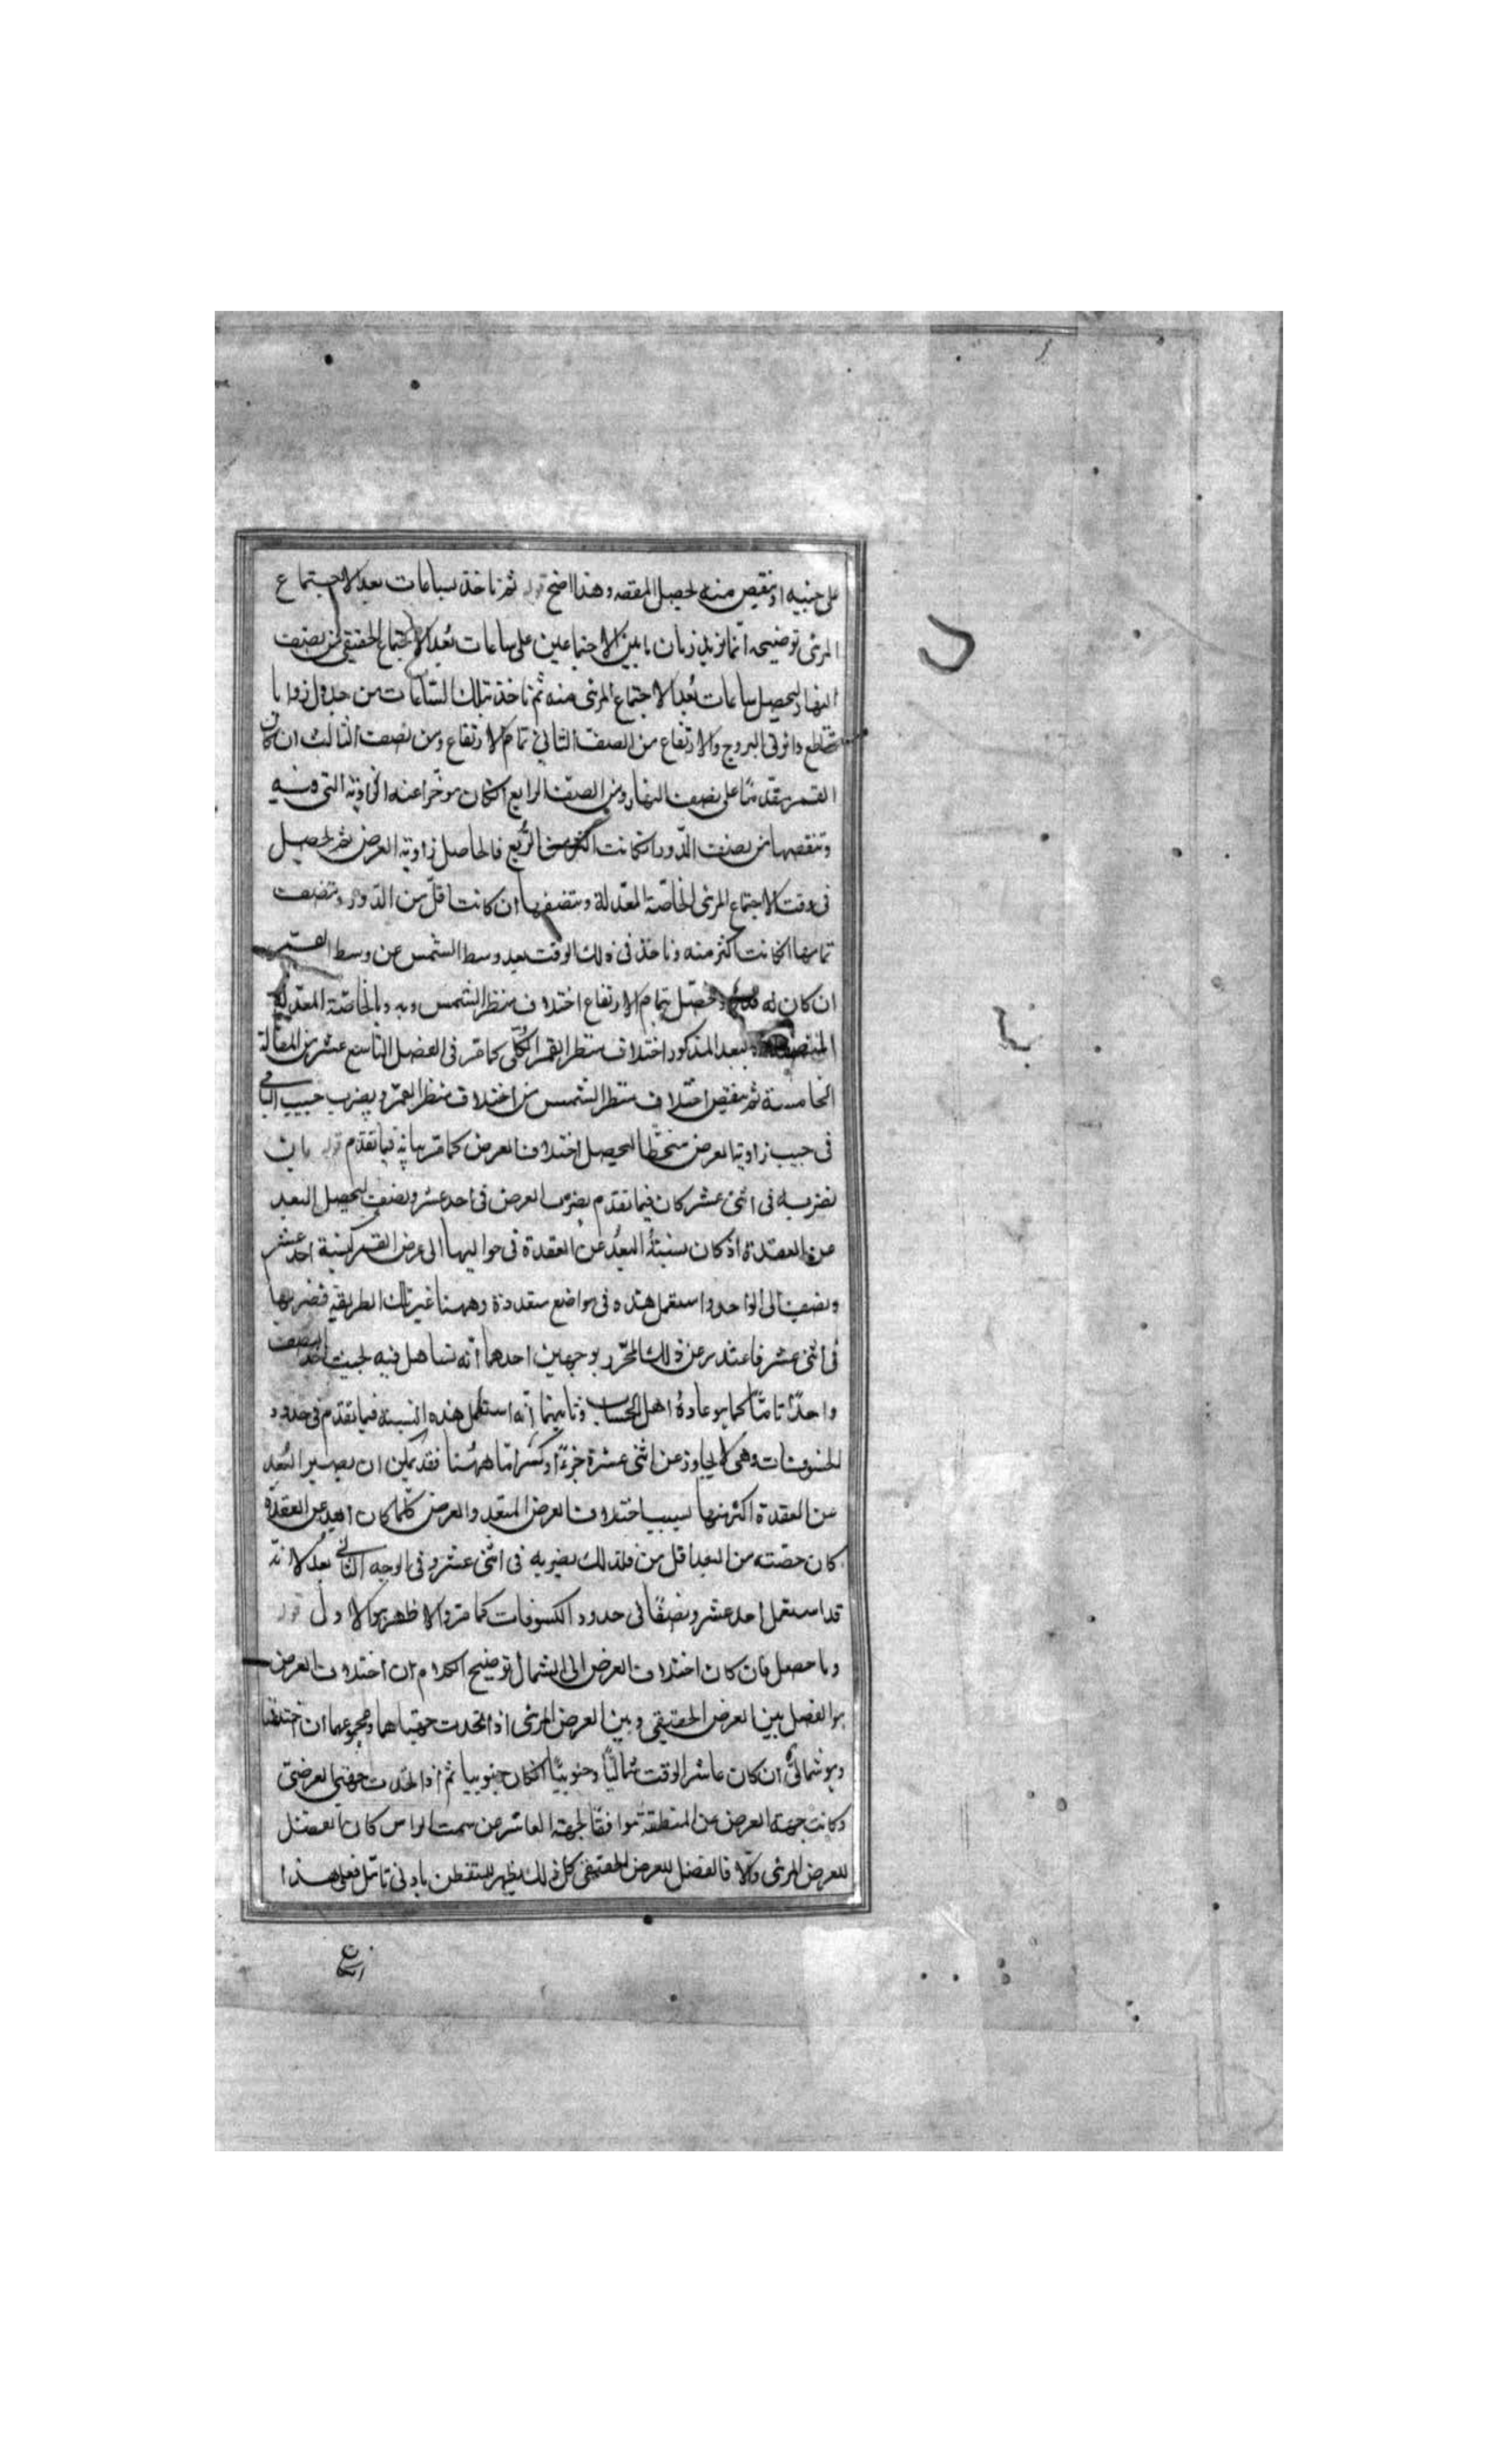 على جنبيه او ننقص منه ليحصل المقصد وهذا اضح قوله ثم ناخذ بساعات بعد الاجتماع
المرئى توضيحه انما نزيد زمان ما بين الاجتماعين على ساعات بُعد الاجتماع الحقيقى عن نصف
النهار ليحصل ساعات بُعد الاجتماع المرئى منه ثم ناخذ بتلك الساعات من جدول زوايا
تقاطع دائرتى البروج والارتفاع من الصف الثانى تمام الارتفاع ومن نصف الثالث ان كان
القمر متقدّمًا على نصف النهار ومن الصف الرابع ان كان موخّرا عنه الزاوية التى فيه
وتنقصها من نصف الدّور ان كانت اكثر من الرُبع فالحاصل زاوية العرض ثم نحصيل
فى وقت الاجتماع المرئى الخاصّة المعدّلة وننصّفها ان كانت اقلّ من الدّور وننصف
تمامها ان كانت اكثر منه وناخذ فى ذلك الوقت بعد وسط الشمس عن وسط القمر
ان كان له ونحصّل بتمام الارتفاع اختلاف منظر الشمس وبه وبالخاصّة المعدّلة
المنصفة والبعد المذكور اختلاف منظر القمر الكلّى كما مرّ فى الفصل التاسع عشر من المقالة
الخامسة ثم ننقص اختلاف منظر الشمس من اختلاف منظر القمر ويضرب جيب الباقى
فى جيب زاوية العرض منحطّا ليحصل اختلاف العرض كما مرّ بيانه فيما تقدّم قوله بان
نضربه فى اثنى عشر كان فيما تقدم يضرب العرض فى احد عشر ونصف ليحصل البعد
عن العقدة اذ كان نسبة البُعد عن العقدة فى حواليها الى عرض القمر كنسبة احد عشر
ونصف الى الواحد واستعمل هذه فى مواضع متعددة وههنا غير تلك الطريقة فضربها
فى اثنى عشر فاعتذر عن ذلك المحرّر بوجهين احدهما انّه تساهل فيه لحيث اخذ النصف
واحدًا تامًّا كما هو عادة اهل الحساب وثانيهما انّه استعمل هذه النسبة فيما تقدم فى حدود
الخسوفات وهى لا يجاوز عن اثنى عشرة جزءًا وكسر امّا ههُنا فقد يمكن ان يصير البُعد
عن العقدة اكثر منها بسبب اختلاف العرض المتعد والعرض كلّما كان ابعد عن العقدة
كان حصّته من البعد اقل من فلذلك يضربه فى اثنى عشر وفى الوجه الثانى بعد لانّه
قد استعمل احد عشر ونصفًا فى حدود الكسوفات كما مرّ والاظهر هو الاول قوله
وما حصل فان كان اختلاف العرض الى الشمال توضيح الكلام ان اختلاف العرض
هو الفضل بين العرض الحقيقى وبين العرض المرئى اذا اتحدت جهتاهما ومجموعهما ان اختلفتا
وهو شمالىّ ان كان عاشر الوقت شماليًّا وجنوبيًّا ان كان جنوبيا ثم اذا اتحدت جهتى العرضين
وكانت جهة العرض عن المنطقة موافقًا لجهة العاشر من سمت الراس كان الفضل
للعرض المرئى والّا فالفضل للعرض الحقيقى كلّ ذلك يظهر للمتفطن بادنى تامّل فعلى هذا
ان كان